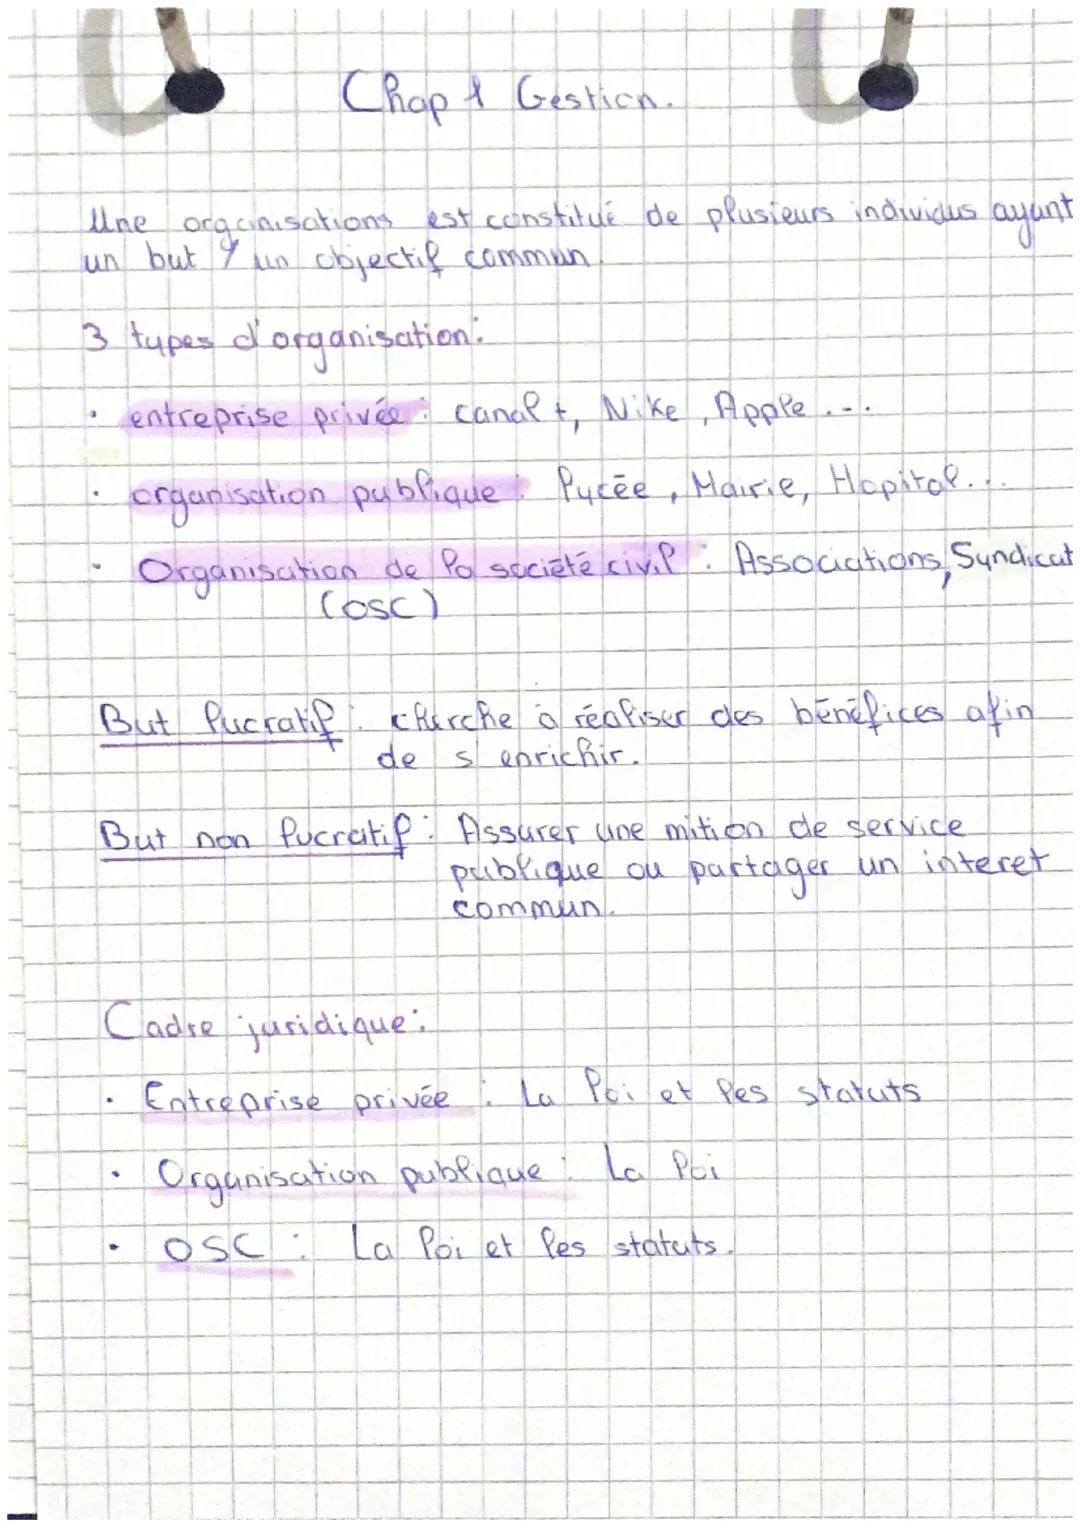 Chap 1 Gestion.
Une organisations est constitué de plusieurs individus ayant
un but / un objectif commun.
3 types d'organisation:
• entreprise privée : canal +, Nike, Apple ...
• organisation publique : lycée, Mairie, Hopital...
• Organisation de la société civil : Associations, Syndicat
(OSC)
But lucratif : cherche à réaliser des bénéfices afin
de s enrichir.
But non lucratif : Assurer une mition de service
publique ou partager un interet
commun.
Cadre juridique :
• Entreprise privée : La loi et les statuts
• Organisation publique : La loi
• OSC : La loi et les statuts.